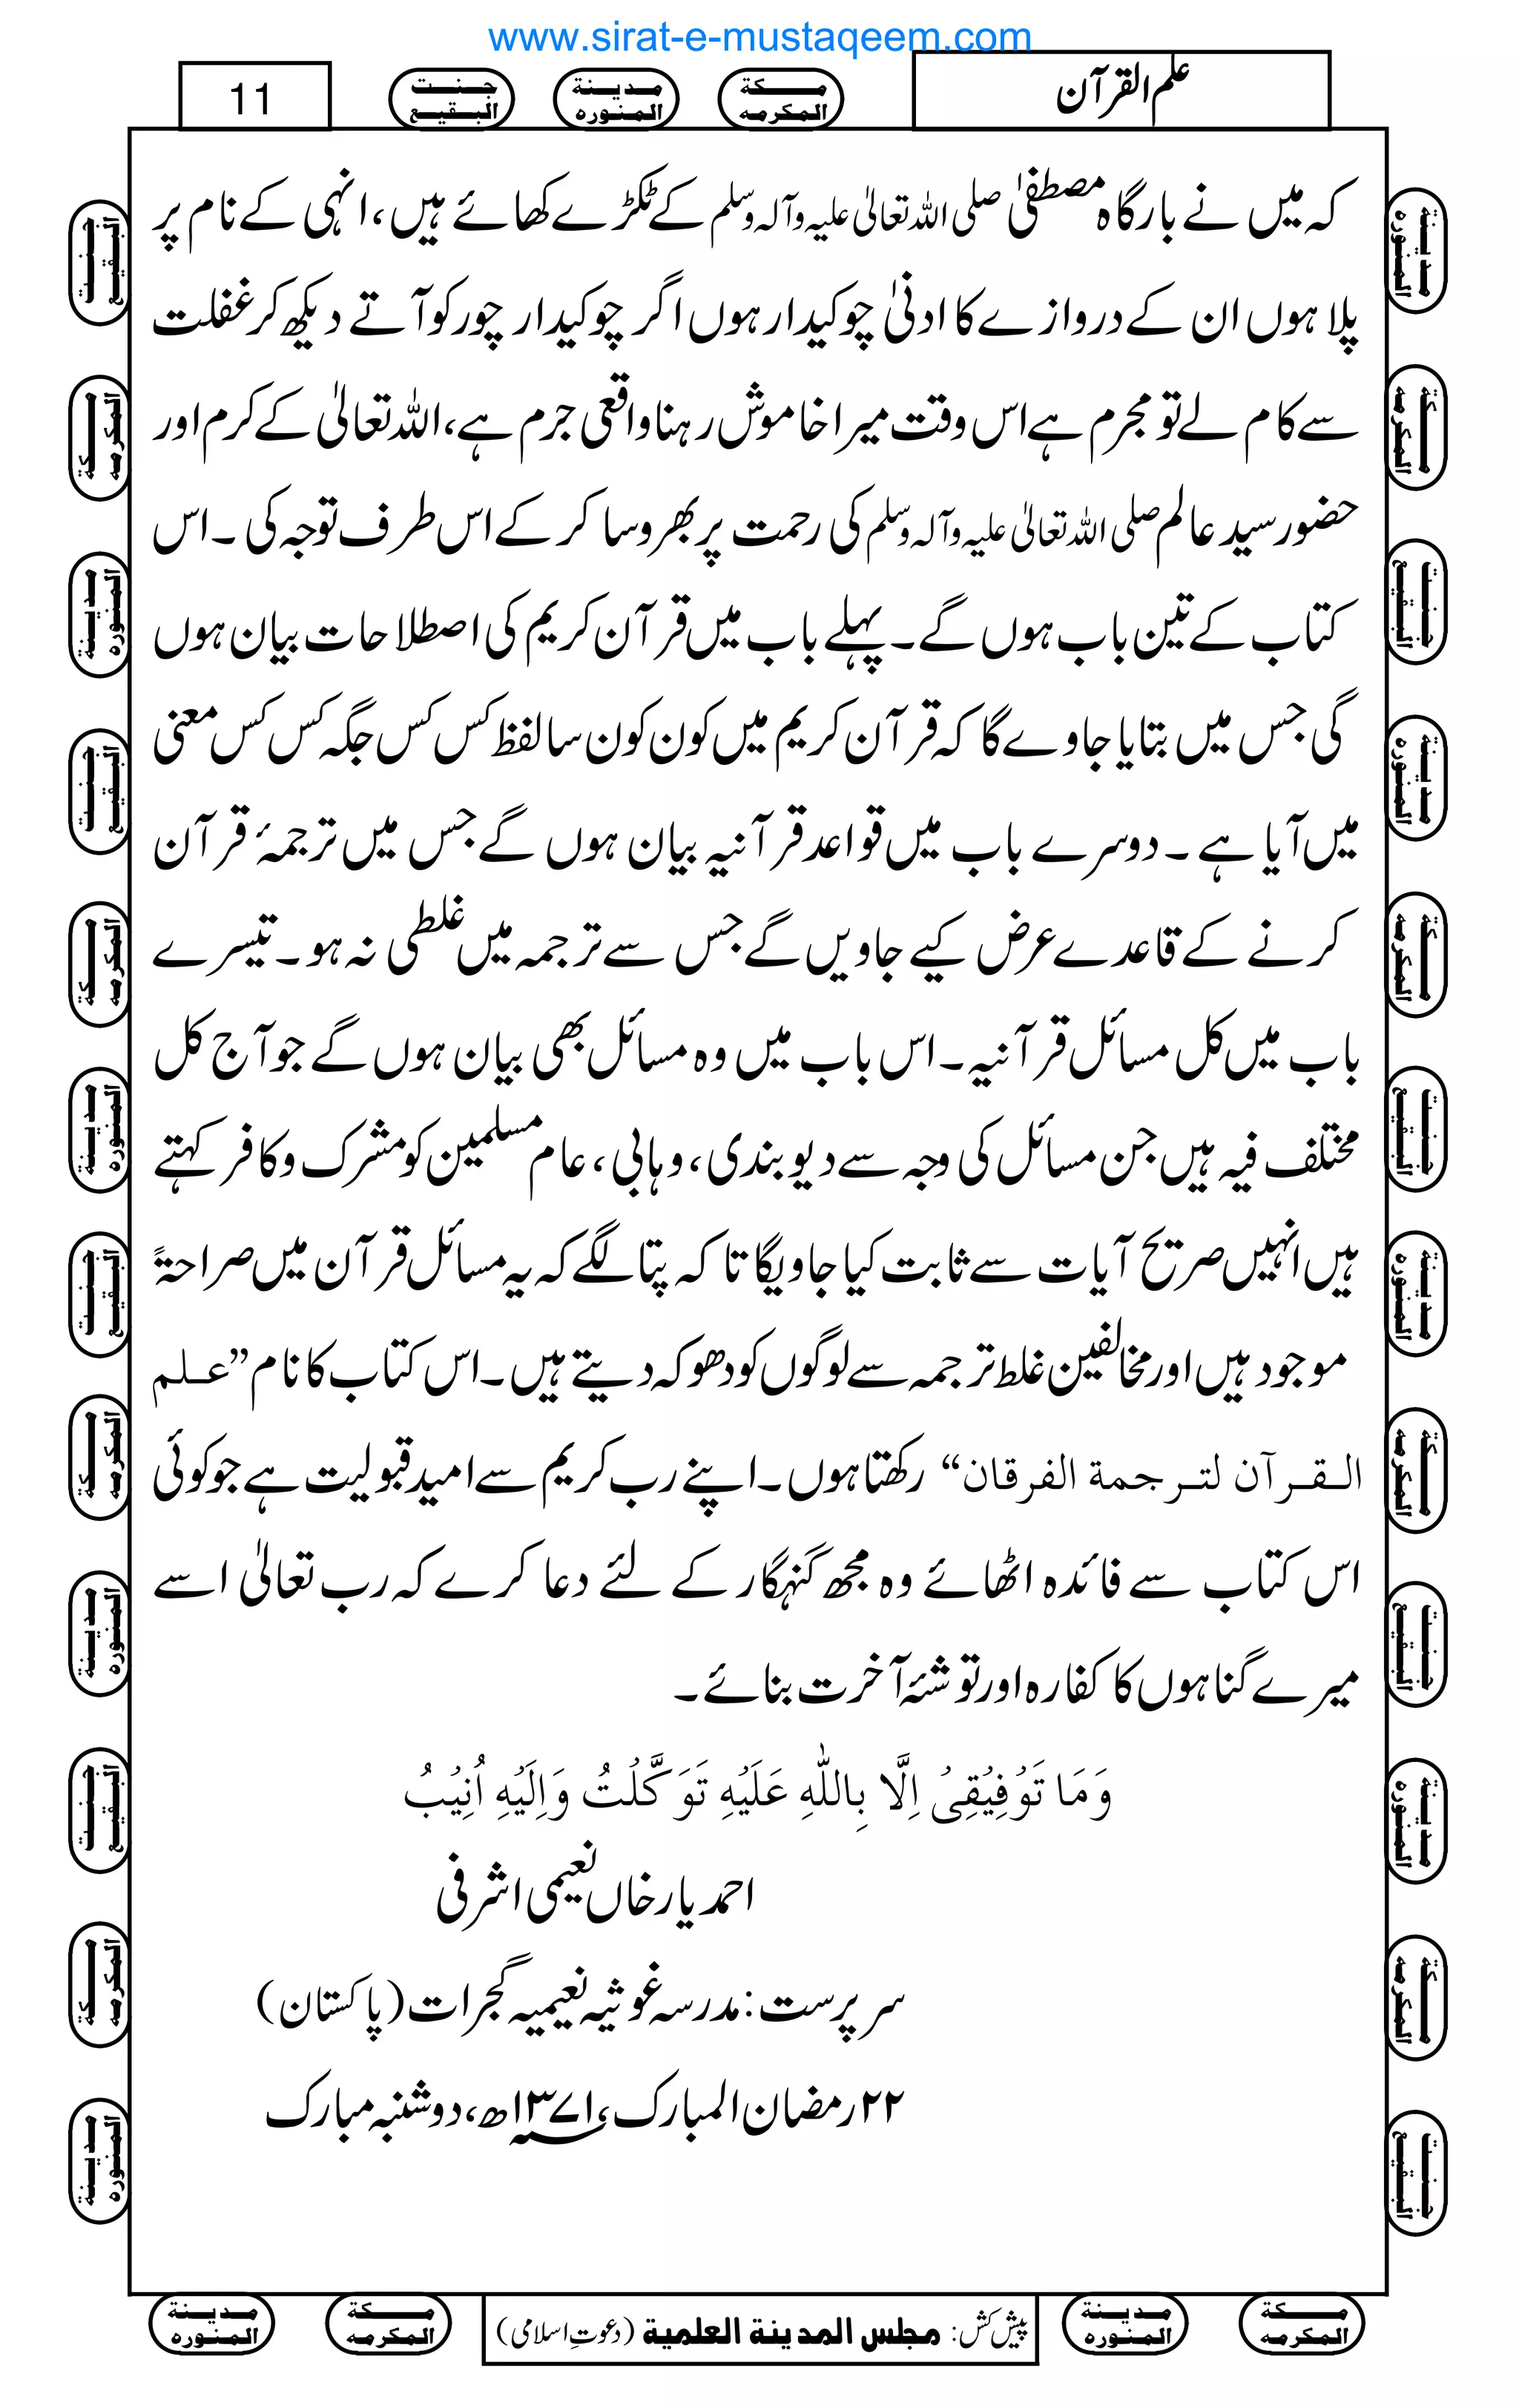 www.sirat-e-mustaqeem.com
علم القرآن
مکة المکرمه
مدینة المنوره
جنت البقیع
11
کہ میں نے بارگاہ مصطفیٰ صلی اللہ تعالیٰ علیہ وآلہ وسلم کے ٹکڑے کھائے ہیں، انہی کے نام پر
پلا ہوں ان کے دروازے کا ادنیٰ چوکیدار ہوں اگر چوکیدار چور کو آتے دیکھ کر غفلت
سے کام لے تو مجرم ہے اس وقت میرا خاموش رہنا واقعی جرم ہے، اللہ تعالیٰ کے کرم اور
حضور سید عالم صلی اللہ تعالیٰ علیہ وآلہ وسلم کی رحمت پر بھروسا کر کے اس طرف توجہ کی۔ اس
کتاب کے تین باب ہوں گے۔ پہلے باب میں قرآن کریم کی اصطلاحات بیان ہوں
گی جس میں بتایا جاوے گا کہ قرآن کریم میں کون کون سا لفظ کس کس جگہ کس کس معنی
میں آیا ہے۔ دوسرے باب میں قواعد قرآنیہ بیان ہوں گے جس میں ترجمۂ قرآن
کرنے کے قاعدے عرض کیے جاویں گے جس سے ترجمہ میں غلطی نہ ہو۔ تیسرے
باب میں کل مسائل قرآنیہ۔ اس باب میں وہ مسائل بھی بیان ہوں گے جو آج کل
مختلف فیہ ہیں جن مسائل کی وجہ سے دیوبندی، وہابی، عام مسلمین کو مشرک وکافر کہتے
ہیں انہیں صریح آیات سے ثابت کیا جاویگا تاکہ پتا لگے کہ یہ مسائل قرآن میں صراحۃً
موجود ہیں اور مخالفین غلط ترجمہ سے لوگوں کو دھوکہ دیتے ہیں۔ اس کتاب کا نام ’’علم
القرآن لترجمة الفرقان‘‘ رکھتا ہوں۔ اپنے رب کریم سے امید قبولیت ہے جو کوئی
اس کتاب سے فائدہ اٹھائے وہ مجھ گنہگار کے لئے دعا کرے کہ رب تعالیٰ اسے
میرے گناہوں کا کفارہ اور توشۂ آخرت بنائے۔
وَمَا تَوْفِیْقِیْ اِلَّا بِاللّٰهِ عَلَیْهِ تَوَكَّلْتُ وَاِلَیْهِ اُنِیْبُ
احمد یار خاں نعیمی اشرفی
سرپرست: مدرسہ غوثیہ نعیمیہ گجرات (پاکستان)
۲۲ رمضان المبارک، ۱۳۷۱ھ، دوشنبہ مبارک
مکة المکرمه
مدینة المنوره
پیش کش: مجلس المدینة العلمیة (دعوتِ اسلامی)
مکة المکرمه
مدینة المنوره